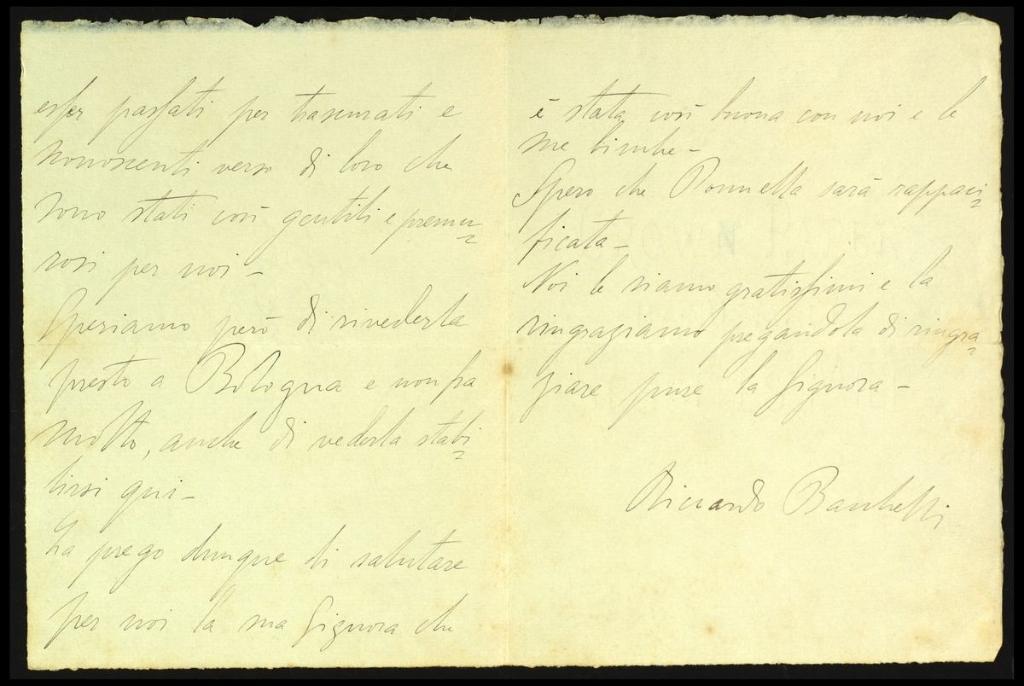 esser passati per trascurati e
sconoscenti verso di loro che
sono stati così gentili e premu=
rosi per noi –
Speriamo però di rivederla
presto a Bologna e non fra
molto, anche di vederla stabi=
lirsi qui –
La prego dunque di salutare
per noi la sua Signora che
è stata così buona con noi e le
sue bimbe –
Spero che Donnella sarà rappaci=
ficata –
Noi le siamo gratissimi e la
ringraziamo pregandola di ringra=
ziare pure la Signora –
Riccardo Bacchelli